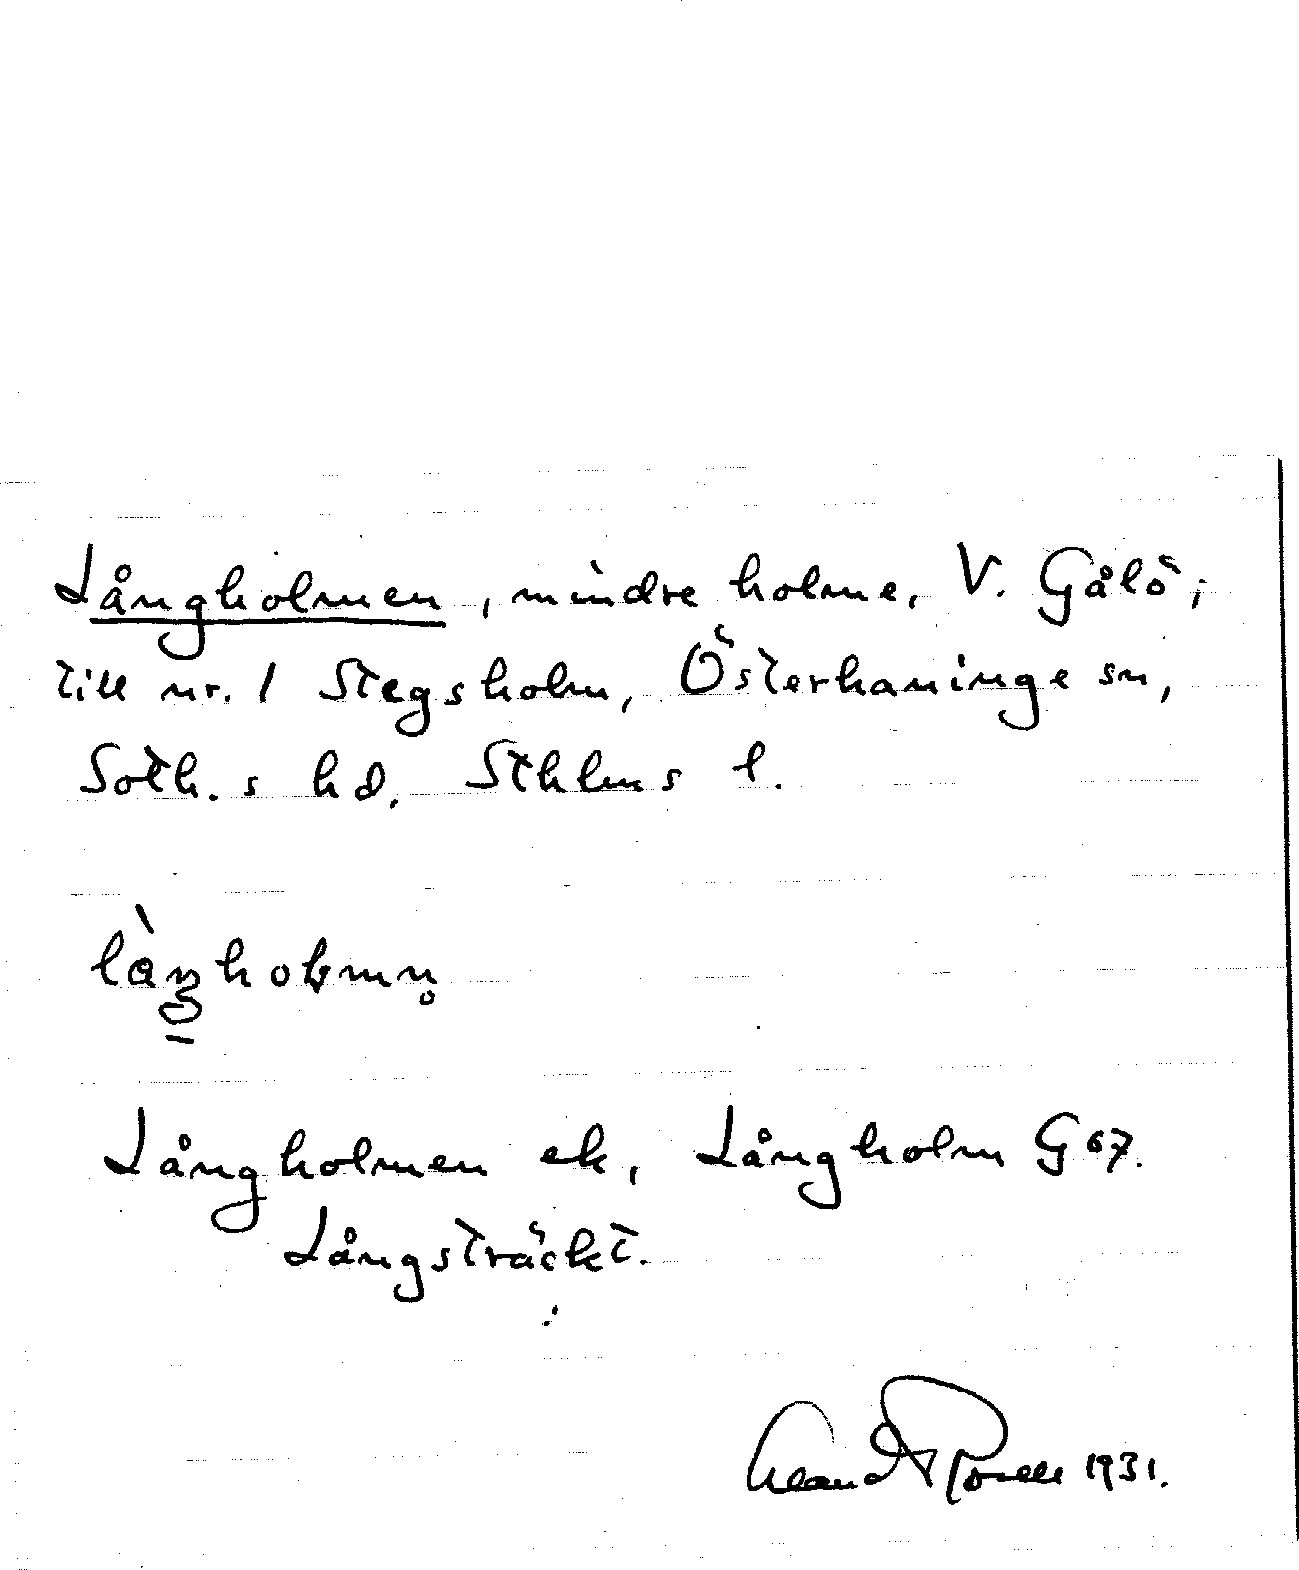 Långholmen, mindre holme, V. Gålö;
till nr. 1 Stegsholm, Österhaninge sn,
Soth.s hd. Sthlms l.
Långholmen ek, Långholm G 67.
Långsträckt.
1931.